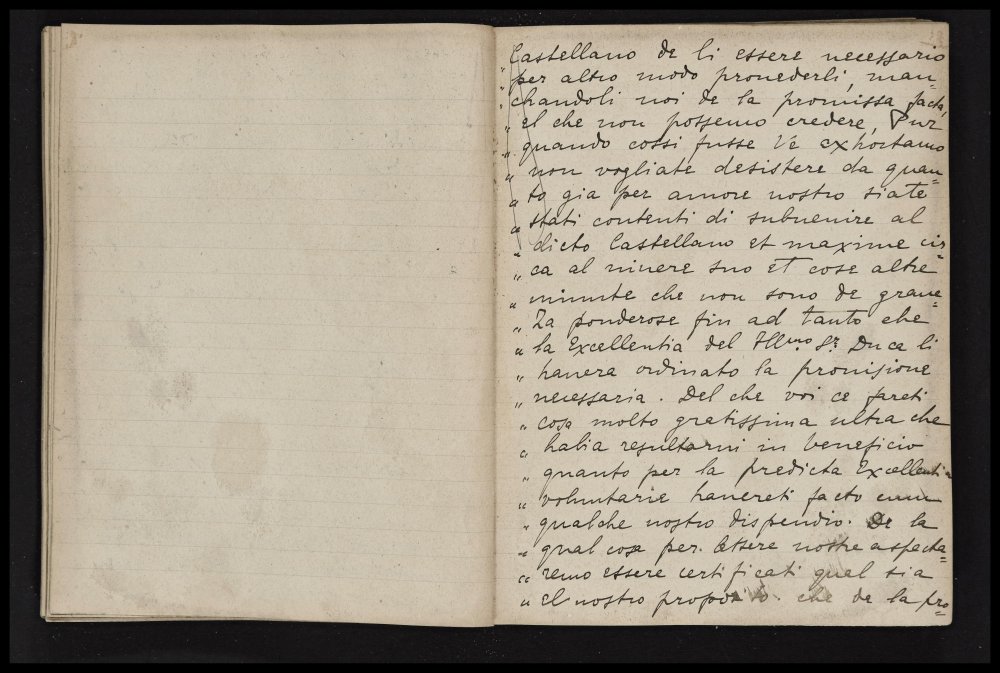 Castellano de li essere necessario
„ per altro modo prouederli, man=
„ chandoli noi de la promissa facta,
„ el che non possemo credere, Pur
„ quando cossi fusse Ve exhortamo
„ non vogliate desistere da quan=
„ to gia per amore nostro siate
„ stati contenti di subuenire al
„ dicto Castellano et maxime cir=
„ ca al uiuere suo et cose altre
„ minute che non sono de graue=
„ za ponderose fin ad tanto che
„ la Excellentia del Ill.mo S.r Duca li
„ hauera ordinato la prouisione
„ necessaria. Del che voi ce fareti
„ cosa molto gratissima ultra che
„ habia resultarui in beneficio
„ quanto per la predicta Excellentia
„ voluntarie hauereti facto cum
„ qualche nostro dispendio. De la
„ qual cosa per. lettere nostre aspecta=
„ remo essere certificati quel sia
„ el nostro proposito. che de la pro=